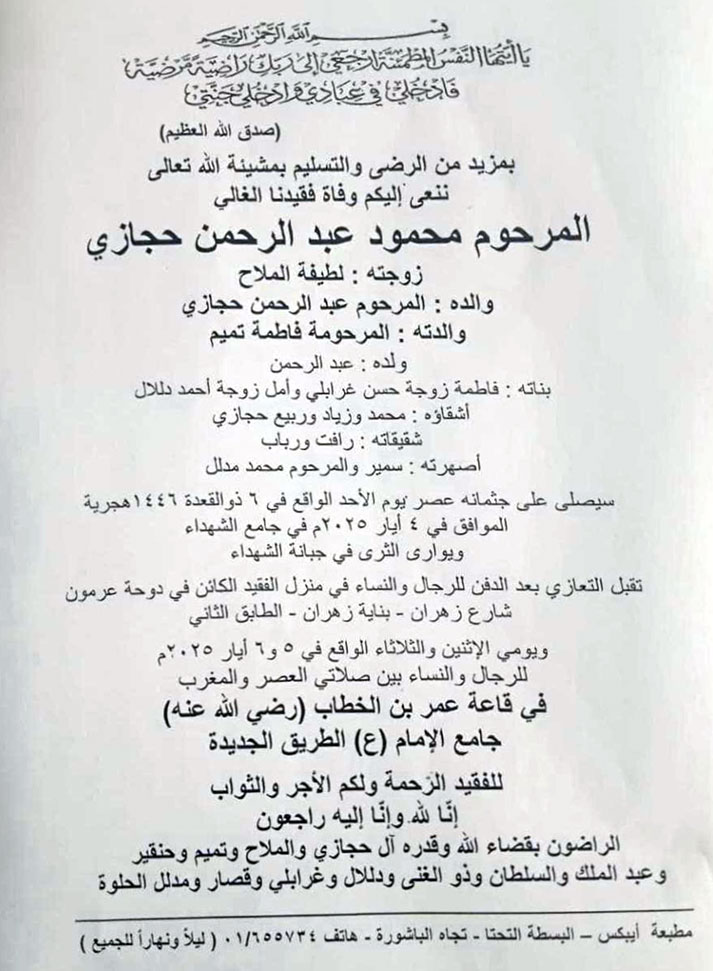 بِسْمِ اللَّهِ الرَّحْمَنِ الرَّحِيمِ
يَا أَيَّتُهَا النَّفْسُ الْمُطْمَئِنَّةُ ارْجِعِي إِلَى رَبِّكِ رَاضِيَةً مَّرْضِيَّةً
فَادْخُلِي فِي عِبَادِي وَادْخُلِي جَنَّتِي
(صدق الله العظيم)
بمزيد من الرضى والتسليم بمشيئة الله تعالى
ننعى إليكم وفاة فقيدنا الغالي
المرحوم محمود عبد الرحمن حجازي
زوجته : لطيفة الملاح
والده : المرحوم عبد الرحمن حجازي
والدته : المرحومة فاطمة تميم
ولده : عبد الرحمن
بناته : فاطمة زوجة حسن غرابلي وأمل زوجة أحمد دللال
أشقاؤه : محمد وزياد وربيع حجازي
شقيقاته : رافت ورباب
أصهرته : سمير والمرحوم محمد مدلل
سيصلى على جثمانه عصر يوم الأحد الواقع في ٦ ذوالقعدة ١٤٤٦هجرية
الموافق في ٤ أيار ٢٠٢٥م في جامع الشهداء
ويوارى الثرى في جبانة الشهداء
تقبل التعازي بعد الدفن للرجال والنساء في منزل الفقيد الكائن في دوحة عرمون
شارع زهران - بناية زهران - الطابق الثاني
ويومي الإثنين والثلاثاء الواقع في ٥ و٦ أيار ٢٠٢٥م
للرجال والنساء بين صلاتي العصر والمغرب
في قاعة عمر بن الخطاب (رضي الله عنه)
جامع الإمام (ع) الطريق الجديدة
للفقيد الرَحمة ولكم الأجر والثواب
إنّا لله وإنّا إليه راجعون
الراضون بقضاء الله وقدره آل حجازي والملاح وتميم وحنقير
وعبد الملك والسلطان وذو الغنى ودللال وغرابلي وقصار ومدلل الحلوة
مطبعة أيبكس – البسطة التحتا - تجاه الباشورة - هاتف ٠١/٦٥٥٧٣٤ ( ليلاً ونهاراً للجميع )